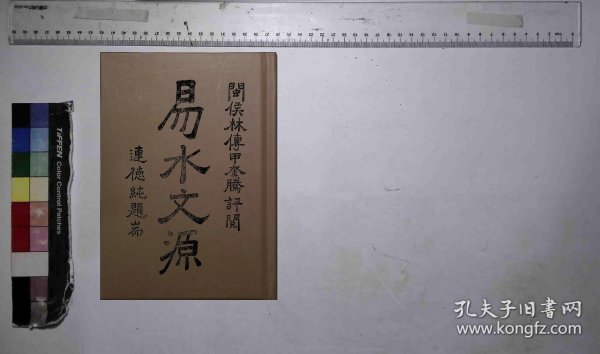 閩侯林傳甲奎騰評閱
易水文源
連德純題耑
TIFFEN Color Control Patches
孔夫子旧书网
www.kongfz.com